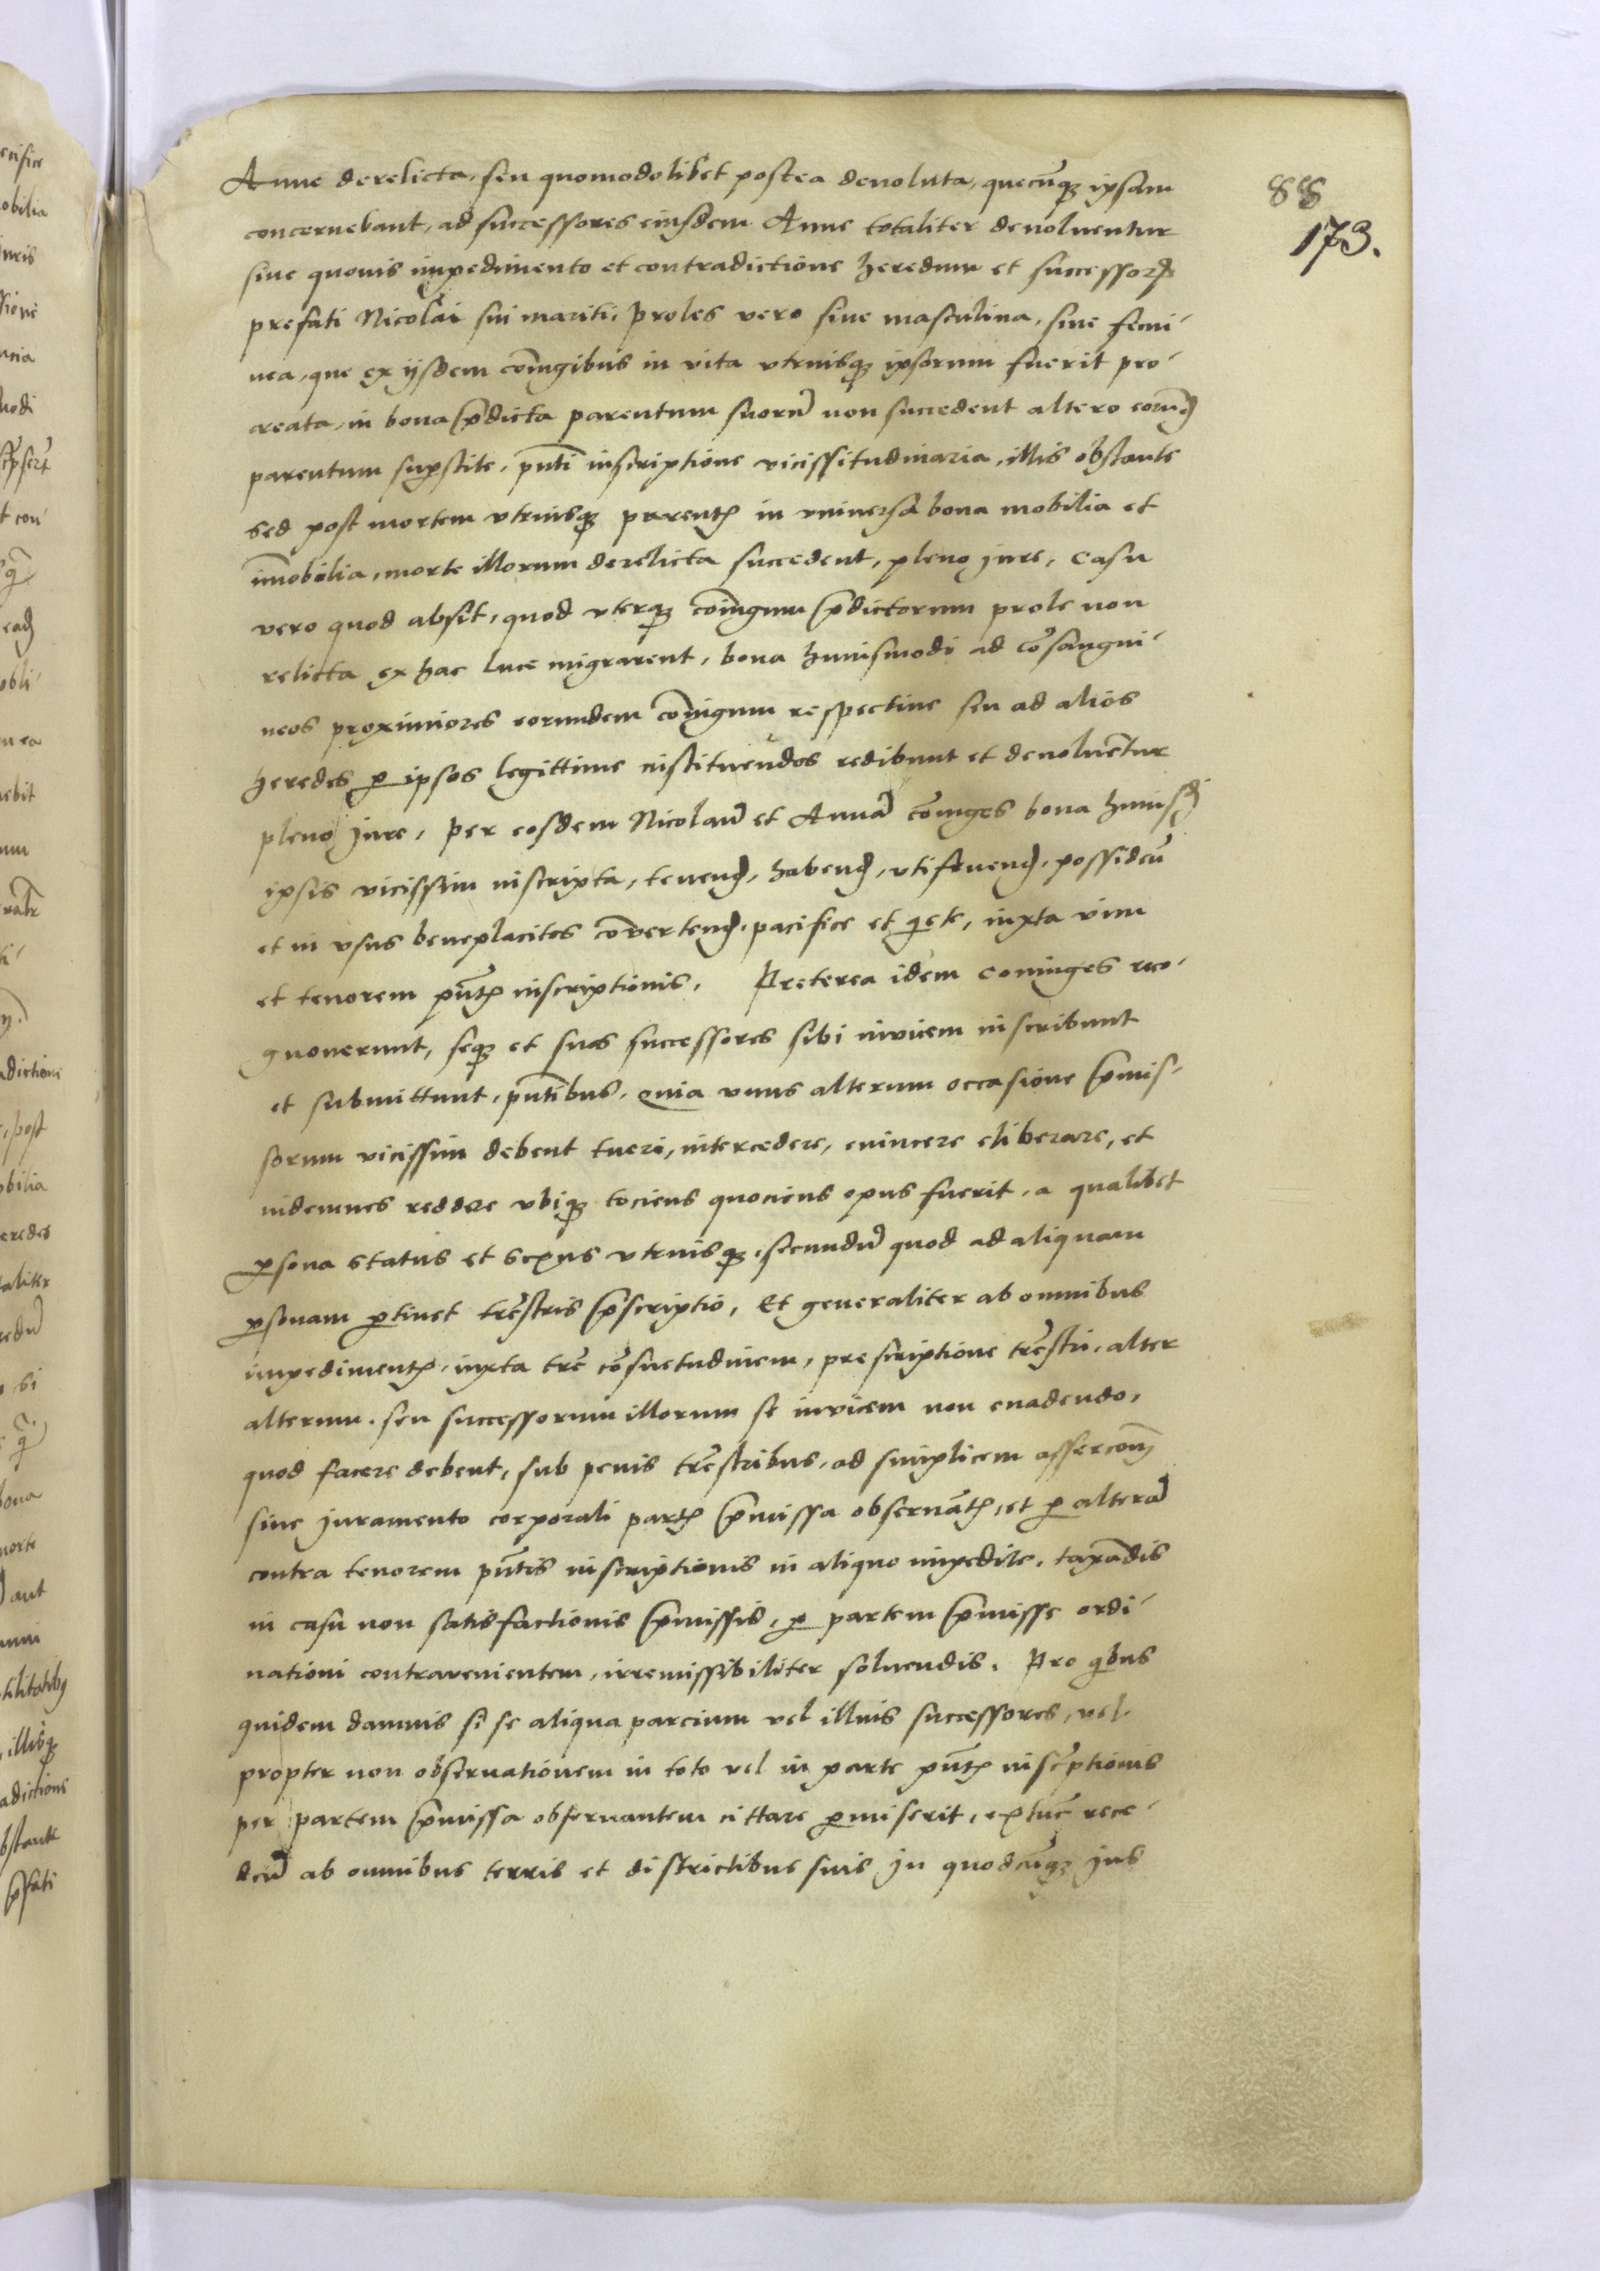 88
173.
Anne derelicta, seu quomodolibet postea devoluta, quecūqꝫ ipsam
concernebant, ad successores eiusdem Anne totaliter devoluentur
sine quovis impedimento et contradictione heredum et successorꝝ
prefati Nicolai sui mariti, Proles vero sive masculina, sive femi-
nea, que ex ijsdem cōiugibus in vita vtriusqꝫ ipsorum fuerit pro-
creata, in bona p̄dicta parentum suorū non succedent altero eorūd
parentum supstite, pn̄ti inscriptione vicissitudinaria, illis obstante
sed post mortem vtriusqꝫ parentꝭ in vniversa bona mobilia et
im̄obilia, morte illorum derelicta succedent, pleno jure, Casu
vero quod absit, quod vterqꝫ cōiugum p̄dictorum prole non
relicta ex hac luce migrarent, bona huiusmodi ad cōsangui-
neos proximiores eorundem cōiugum respective seu ad alios
heredes ꝑ ipsos legittime instituendos redibunt et devoluētur
pleno jure, Per eosdem Nicolaū et Annā cōiuges bona huiusd
ipsis vicissim inscripta, tenend, habend, vtifruend, possidēd
et in vsus beneplacitos cōvertend, pacifice et qiete, iuxta vim
et tenorem pn̄tꝭ inscriptionis, Preterea idem coniuges reco-
gnoverunt, seqꝫ et suos successores sibi invicem inscribunt
et submittunt, pn̄tibus, Quia vnus alterum occasione p̄mis-
sorum vicissim debent tueri, intercedere, evincere eliberare, et
indemnes reddere vbiqꝫ tociens quociens opus fuerit, a qualibet
ꝑsona status et sexus vtriusqꝫ, secundū quod ad aliquam
ꝑsonam ꝑtinet trēstris p̄scriptio, Et generaliter ab omnibus
impedimentꝭ, iuxta trē cōsuetudinem, prescriptione trēstri, alter
alterum, seu successorum illorum se invicem non evadendo,
quod facere debent, sub penis trēstribus, ad simplicem assercōem
sine juramento corporali partꝭ p̄missa observātꝭ, et ꝑ alterā
contra tenorem pn̄tis inscriptionis in aliquo impedite, taxādis
in casu non satisfactionis p̄missis, ꝑ partem p̄misse ordi-
nationi contravenientem, irremissibiliter solvendis, Pro qibus
quidem damnis si se aliqua parcium vel illius successores, vel
propter non observationem in toto vel in parte pn̄tꝭ inscrptionis
per partem p̄missa observantem cittare ꝑmiserit, extūc rece-
dend ab omnibus terris et districtibus suis in quodcūqꝫ jus